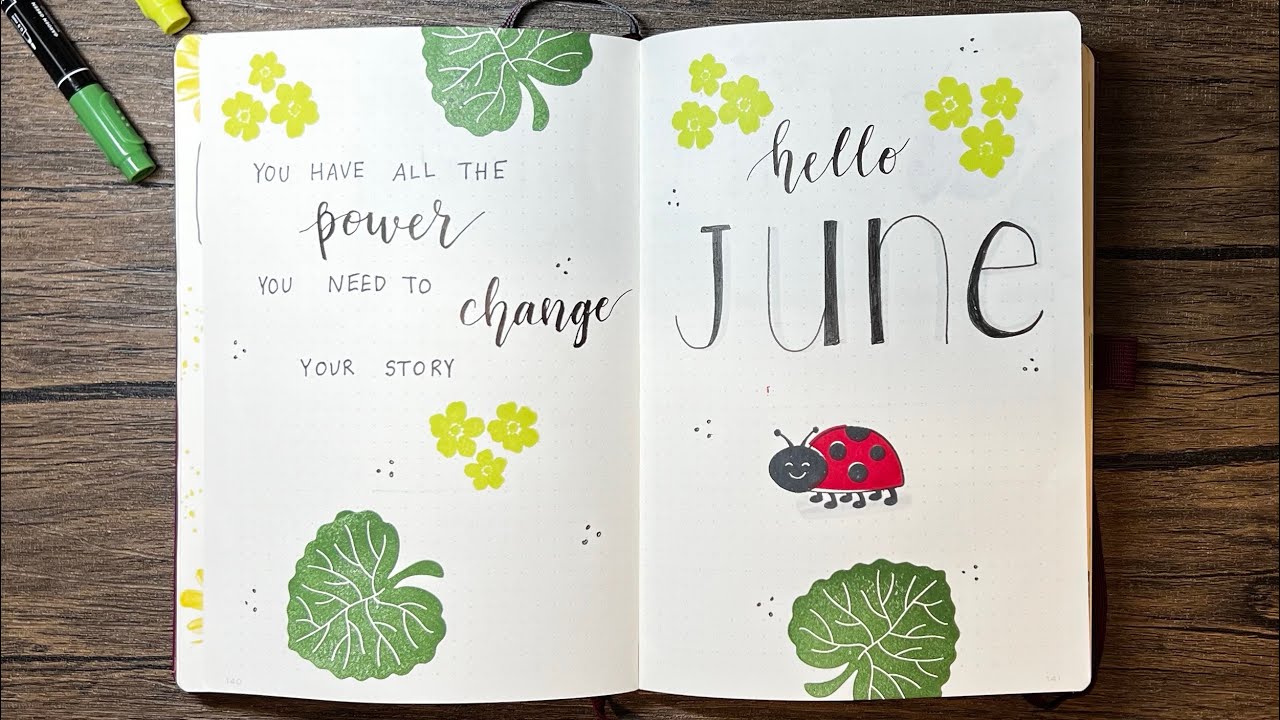 YOU HAVE ALL THE
power
YOU NEED TO
change
YOUR STORY
140
hello
June
141